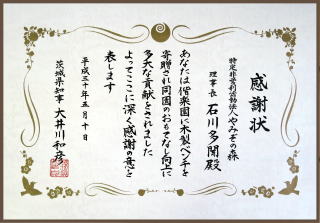 感謝状
特定非営利活動法人やみぞの森
理事長 石川多聞殿
あなたは偕楽園に木製ベンチを
寄贈され同園のおもてなし向上に
多大な貢献をされました
よってここに深く感謝の意を
表します
平成三十年五月十日
茨城県知事 大井川和彦